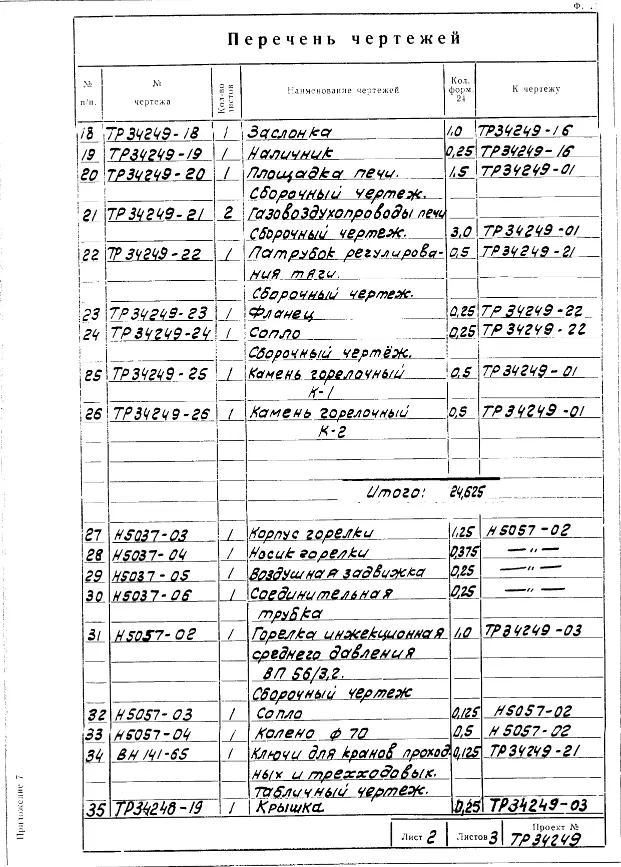 Ф.
Перечень чертежей
№ п/п. № чертежа Кол-во листов Наименование чертежей Кол. форм. 24 К чертежу
18 ТР34249-18 1 Заслонка 1,0 ТР34249-16
19 ТР34249-19 1 Наличник 0,25 ТР34249-16
20 ТР34249-20 1 Площадка печи. 1,5 ТР34249-01
Сборочный чертеж.
21 ТР34249-21 2 Газовоздухопроводы печи
Сборочный чертеж. 3,0 ТР34249-01
22 ТР34249-22 1 Патрубок регулирова- 0,5 ТР34249-21
ния тяги.
Сборочный чертеж.
23 ТР34249-23 1 Фланец 0,25 ТР34249-22
24 ТР34249-24 1 Сопло 0,25 ТР34249-22
Сборочный чертёж.
25 ТР34249-25 1 Камень горелочный 0,5 ТР34249-01
К-1
26 ТР34249-26 1 Камень горелочный 0,5 ТР34249-01
К-2
Итого: 24,625
27 Н5037-03 1 Корпус горелки 1,25 Н5057-02
28 Н5037-04 1 Носик горелки 0,375 —"—
29 Н5037-05 1 Воздушная задвижка 0,25 —"—
30 Н5037-06 1 Соединительная 0,25 —"—
трубка
31 Н5057-02 1 Горелка инжекционная 1,0 ТР34249-03
среднего давления
ВП 56/3,2.
Сборочный чертеж
32 Н5057-03 1 Сопло 0,125 Н5057-02
33 Н5057-04 1 Колено ф 70 0,5 Н5057-02
34 ВН 141-65 1 Ключи для кранов проход 0,125 ТР34249-21
ных и трехходовых.
Табличный чертеж.
35 ТР34248-19 1 Крышка 0,25 ТР34249-03
Лист 2 Листов 3 Проект № ТР34249
Приложение 7